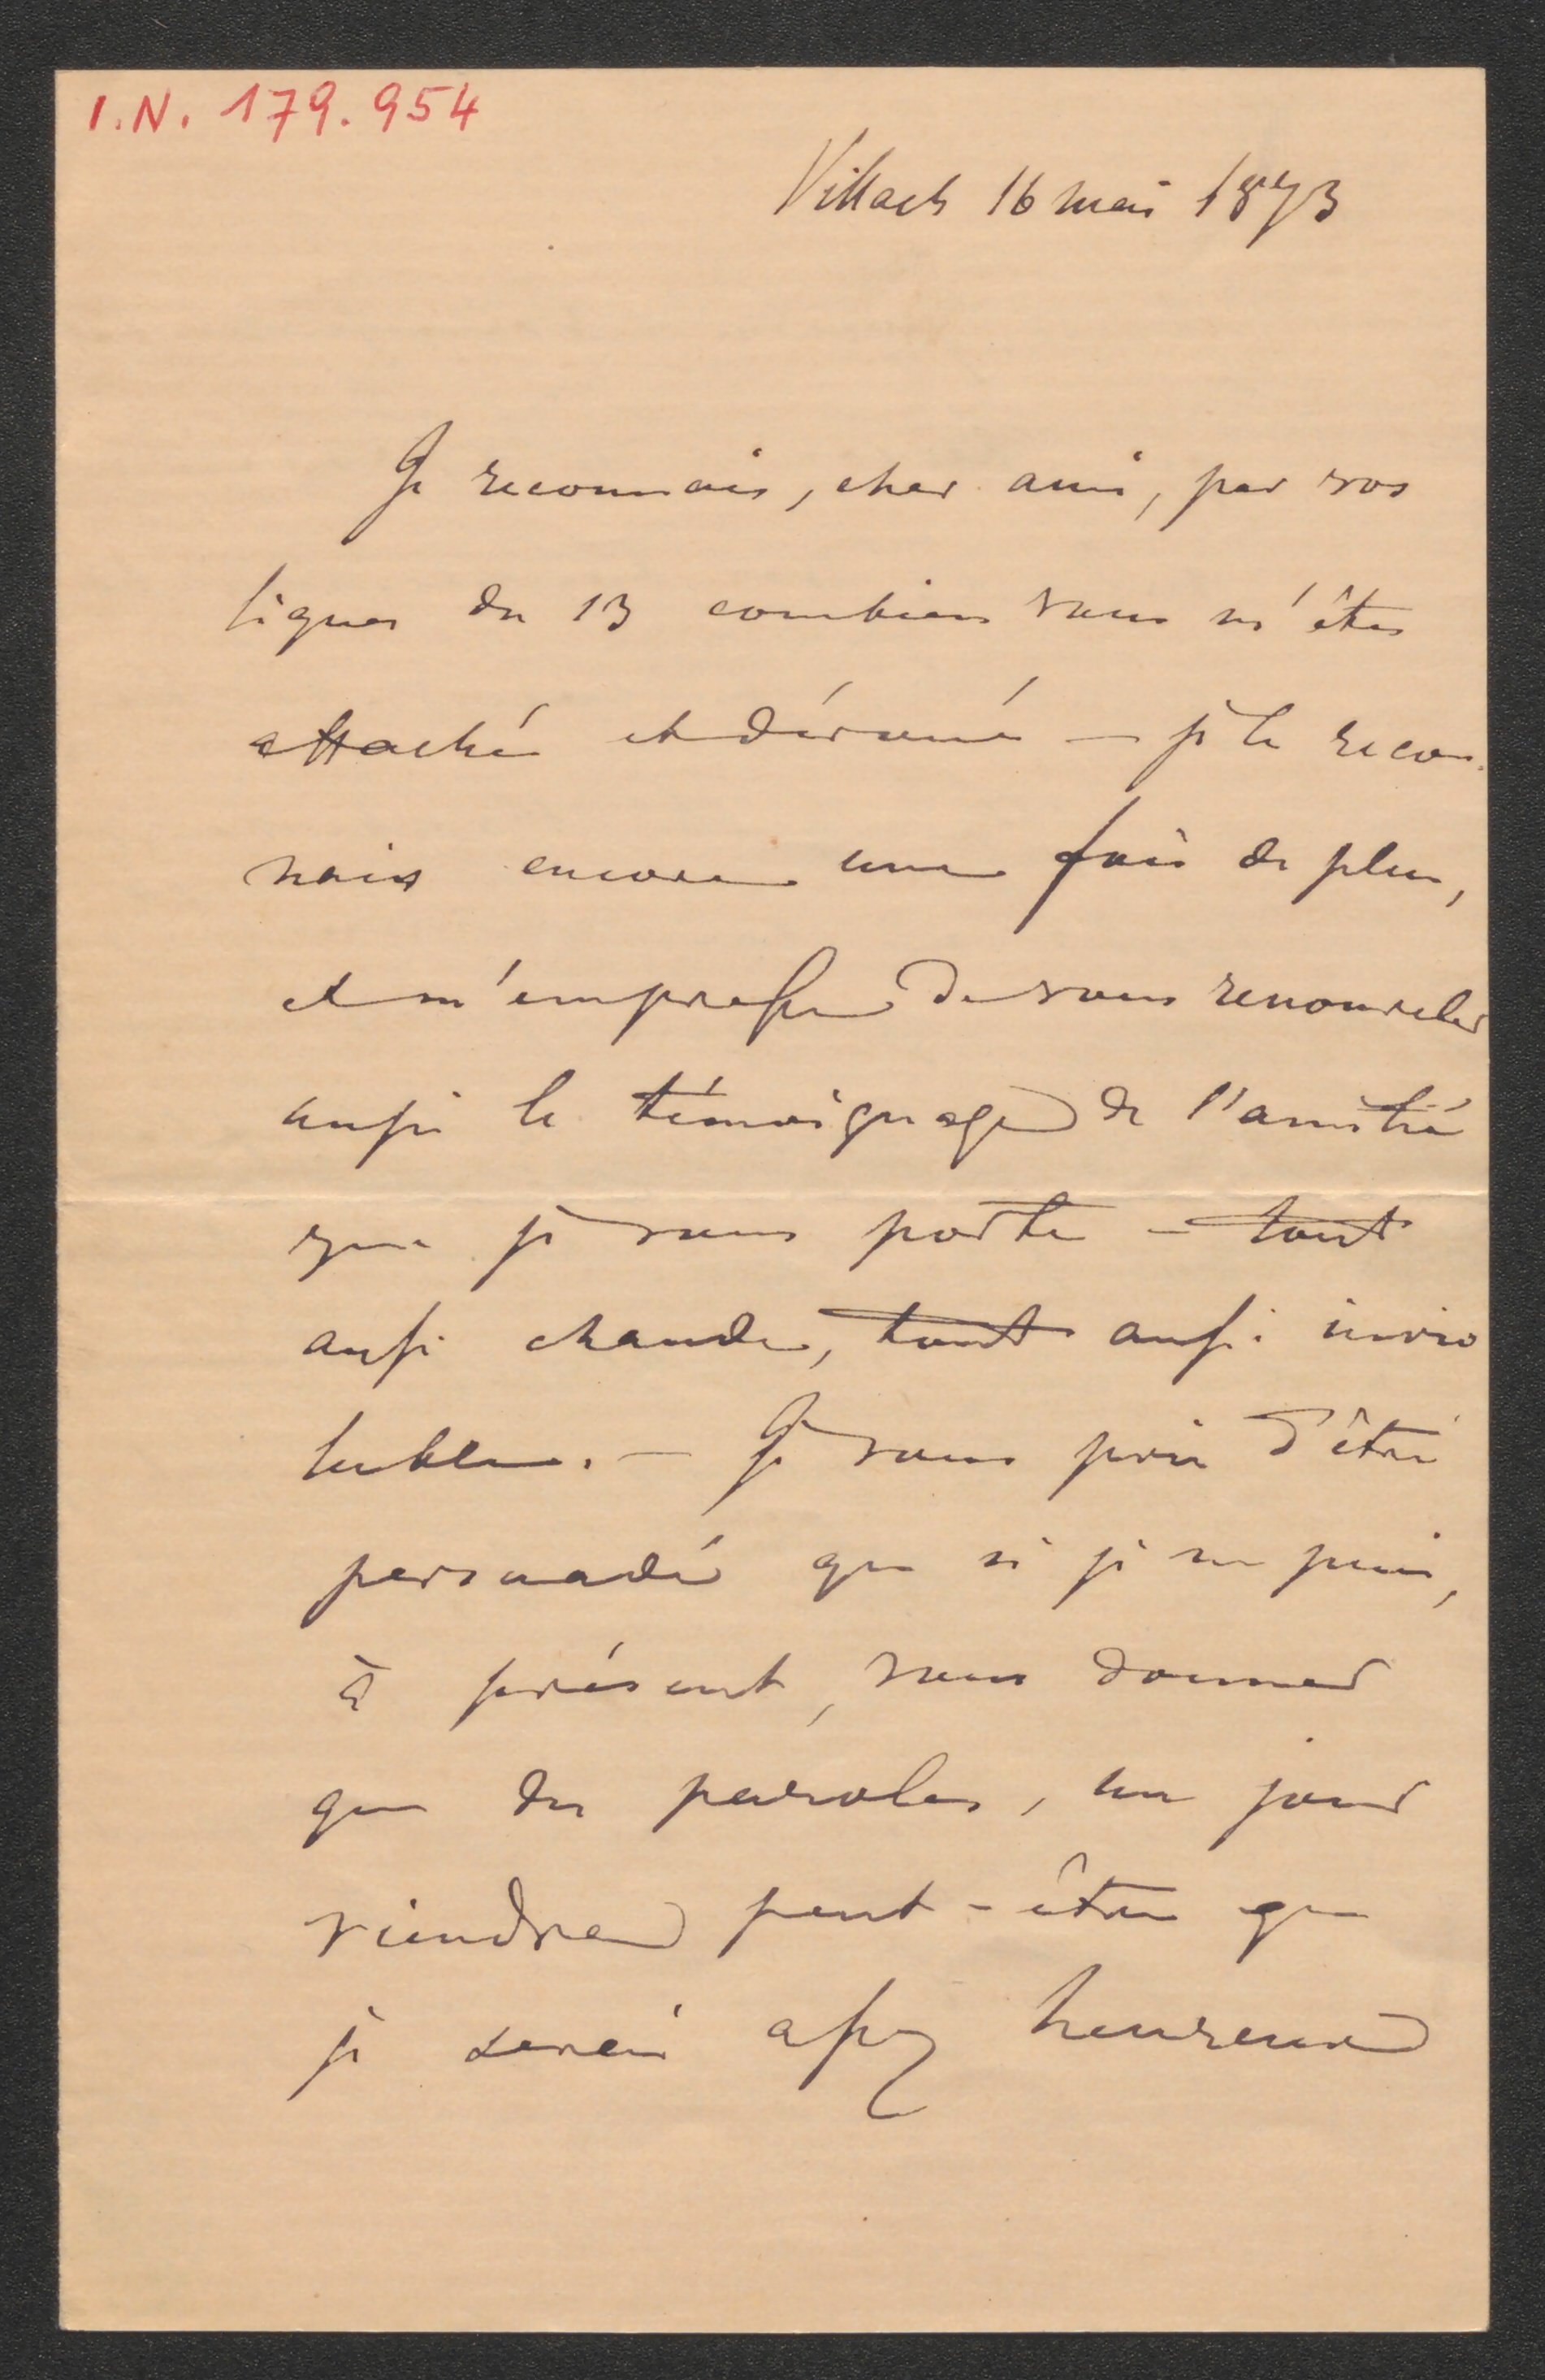 I.N. 179.954
Villach 16 mai 1873
Je reconnais, cher ami, par vos
lignes du 13 combien vous m'êtes
attaché et dévoué — je le recon-
nais encore une fois de plus,
et m'empresse de vous renouveler
aussi le témoignage de l'amitié
que je vous porte — tout
aussi chaude, tout aussi invio
lable. — Je vous prie d'être
persuadé que si je ne puis,
à présent, vous donner
que des paroles, un jour
viendra peut-être que
je serai assez heureux